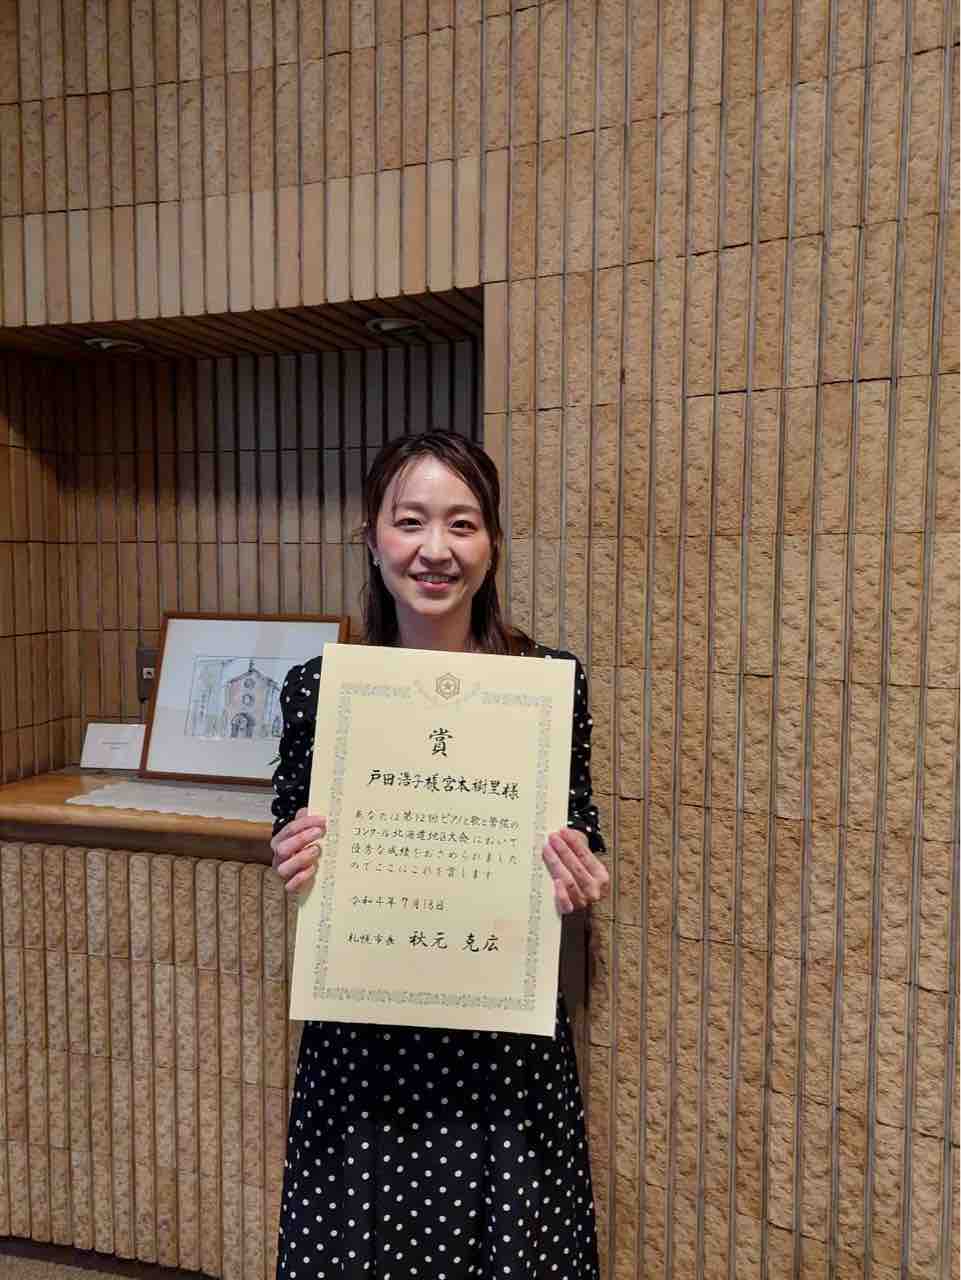 賞
戸田浩子様宮本樹里様
あなたは第12回ピアノと歌と管弦の
コンクール北海道地区大会において
優秀な成績をおさめられました
のでここにこれを賞します
令和4年7月18日
札幌市長 秋元 克広